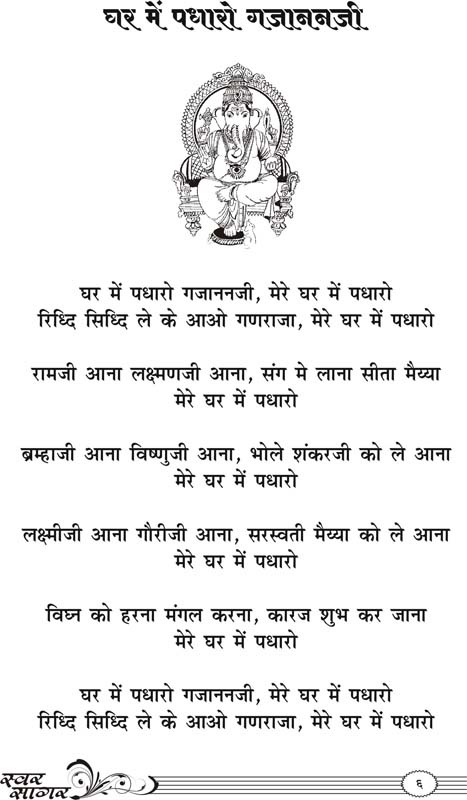 घर में पधारो गजाननजी
घर में पधारो गजाननजी, मेरे घर में पधारो
रिध्दि सिध्दि ले के आओ गणराजा, मेरे घर में पधारो
रामजी आना लक्ष्मणजी आना, संग मे लाना सीता मैय्या
मेरे घर में पधारो
ब्रम्हाजी आना विष्णुजी आना, भोले शंकरजी को ले आना
मेरे घर में पधारो
लक्ष्मीजी आना गौरीजी आना, सरस्वती मैय्या को ले आना
मेरे घर में पधारो
विघ्न को हरना मंगल करना, कारज शुभ कर जाना
मेरे घर में पधारो
घर में पधारो गजाननजी, मेरे घर में पधारो
रिध्दि सिध्दि ले के आओ गणराजा, मेरे घर में पधारो
स्वर
सागर
६